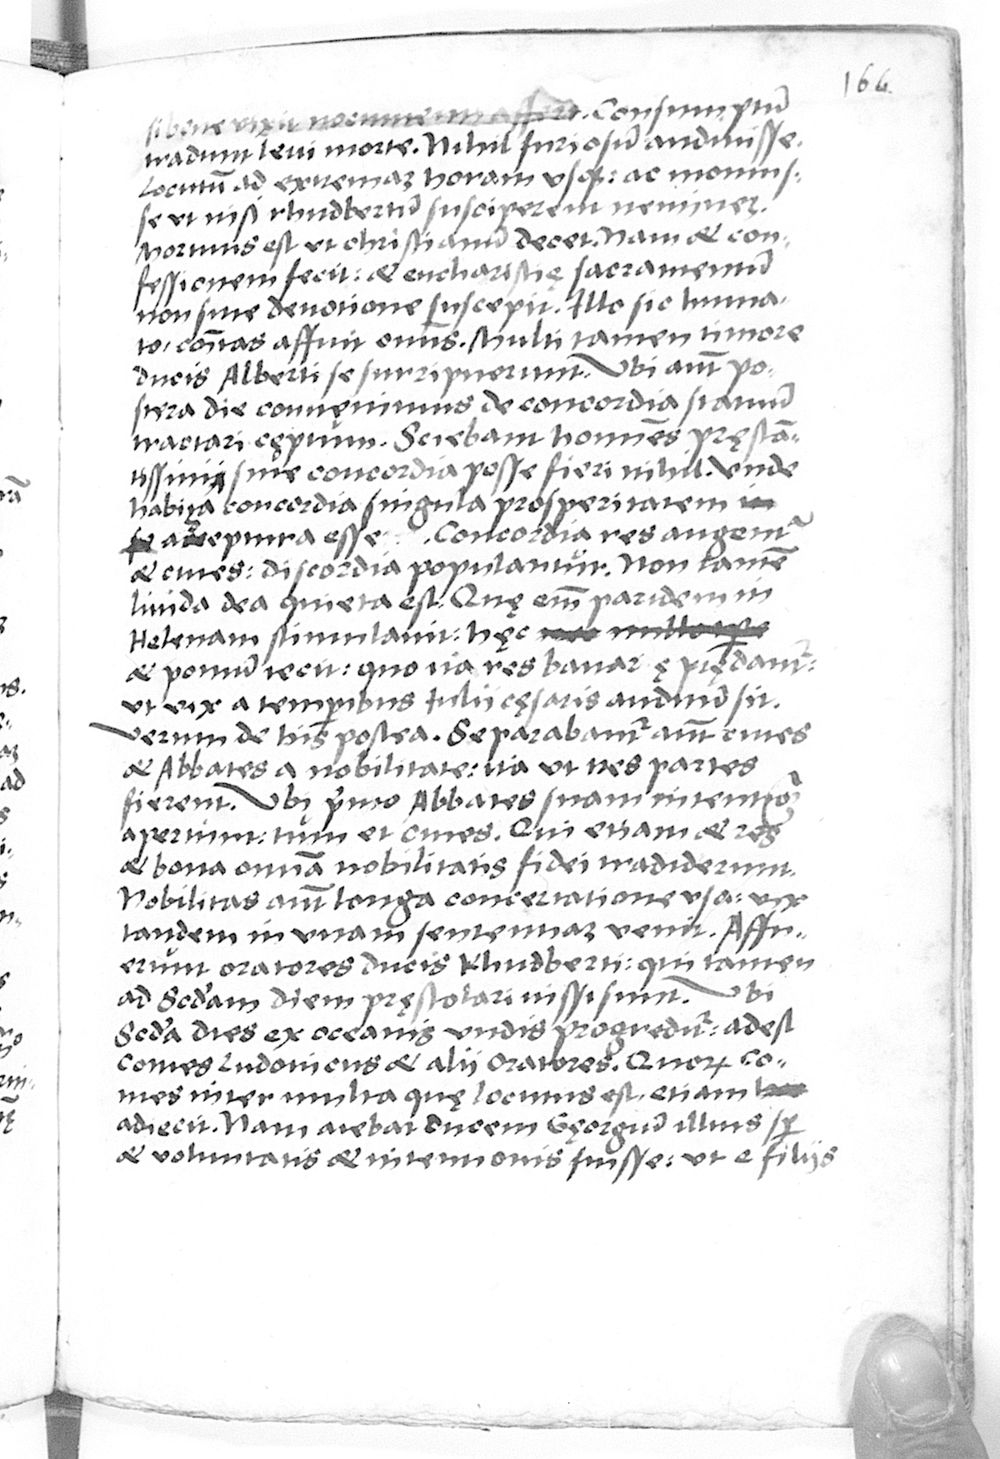 166.
si bene vixit nocumentum affert. Consumptũ
tradunt levi morte. Nihil furiosũ audivisse.
Locutũ ad extremaʒ horam usqʒ: ac monuis-
se ut nisi rhudbertũ susciperent nemineʒ.
Mortuus est ut christianũ decet. Nam & con-
fessionem fecit: & eucharistię sacramentũ
non sine devotione suscepit. Illo sic huma-
to, comitas affuit omnis. Multi tamen timore
ducis Alberti se surripuerunt. Ubi aut̃ po-
stera die convęnimus de concordia statuũ
tractari cęptum. Sciebant homines pręstã-
tissimi sine concordia posse fieri nihil. Unde
habita concordia singula prosperitatem in
se acceptura esse. Concordia res augent̃
& cives: discordia populantur. Non tamẽ
livida dea quieta est. Quę em̃ paridem in
Helenam stimulavit: hęc
& pomũ iecit: quo ita res bavarię prędant̃:
ut vix a temporibus Iulii cęsaris auditũ sit.
Verum de his postea. Separabant̃ aut̃ cives
& Abbates a nobilitate: ita ut tres partes
fierent. Ubi p̃mo Abbates suam intentioñ
aperiunt: tum et cives. Qui etiam & res
& bona omnia nobilitatis fidei tradiderunt.
Nobilitas aut̃ longa concertatione usa: vix
tandem in unam sententiaʒ venit. Affu-
erunt oratores ducis Rhudberti: qui tamen
ad Scd̃am diem pręstolari iussi sunt. Ubi
Scd̃a dies ex oceanis undis progredit̃: adest
Comes Ludovicus & alii Oratores. Quoꝝ co-
mes inter multa quę locutus est, etiam
adiecit. Nam aiebat Ducem Gęorgiũ illius sp̃
& voluntatis & intentionis fuisse: ut e filiis